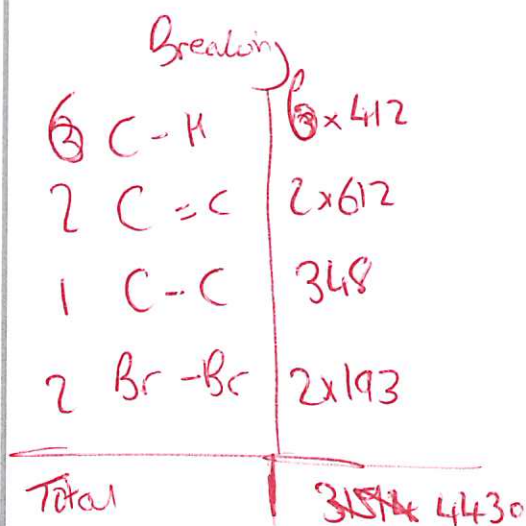 Breaking
6 C-H 6×412
2 C=C 2×612
1 C-C 348
2 Br-Br 2×193
Total 4430